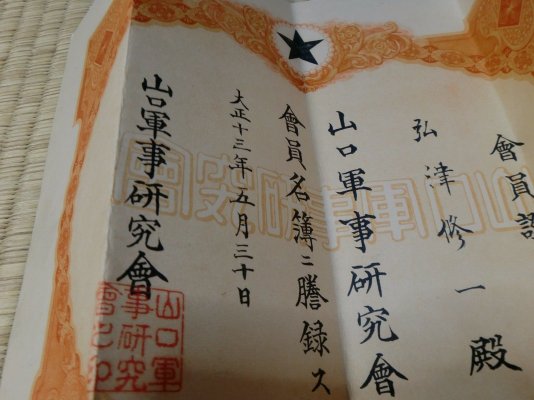 會員證
弘津修一殿
山口軍事研究會
會員名簿ニ謄録ス
大正十三年五月三十日
山口軍事研究會
山口軍
事研究
會之印
會究研事軍口山